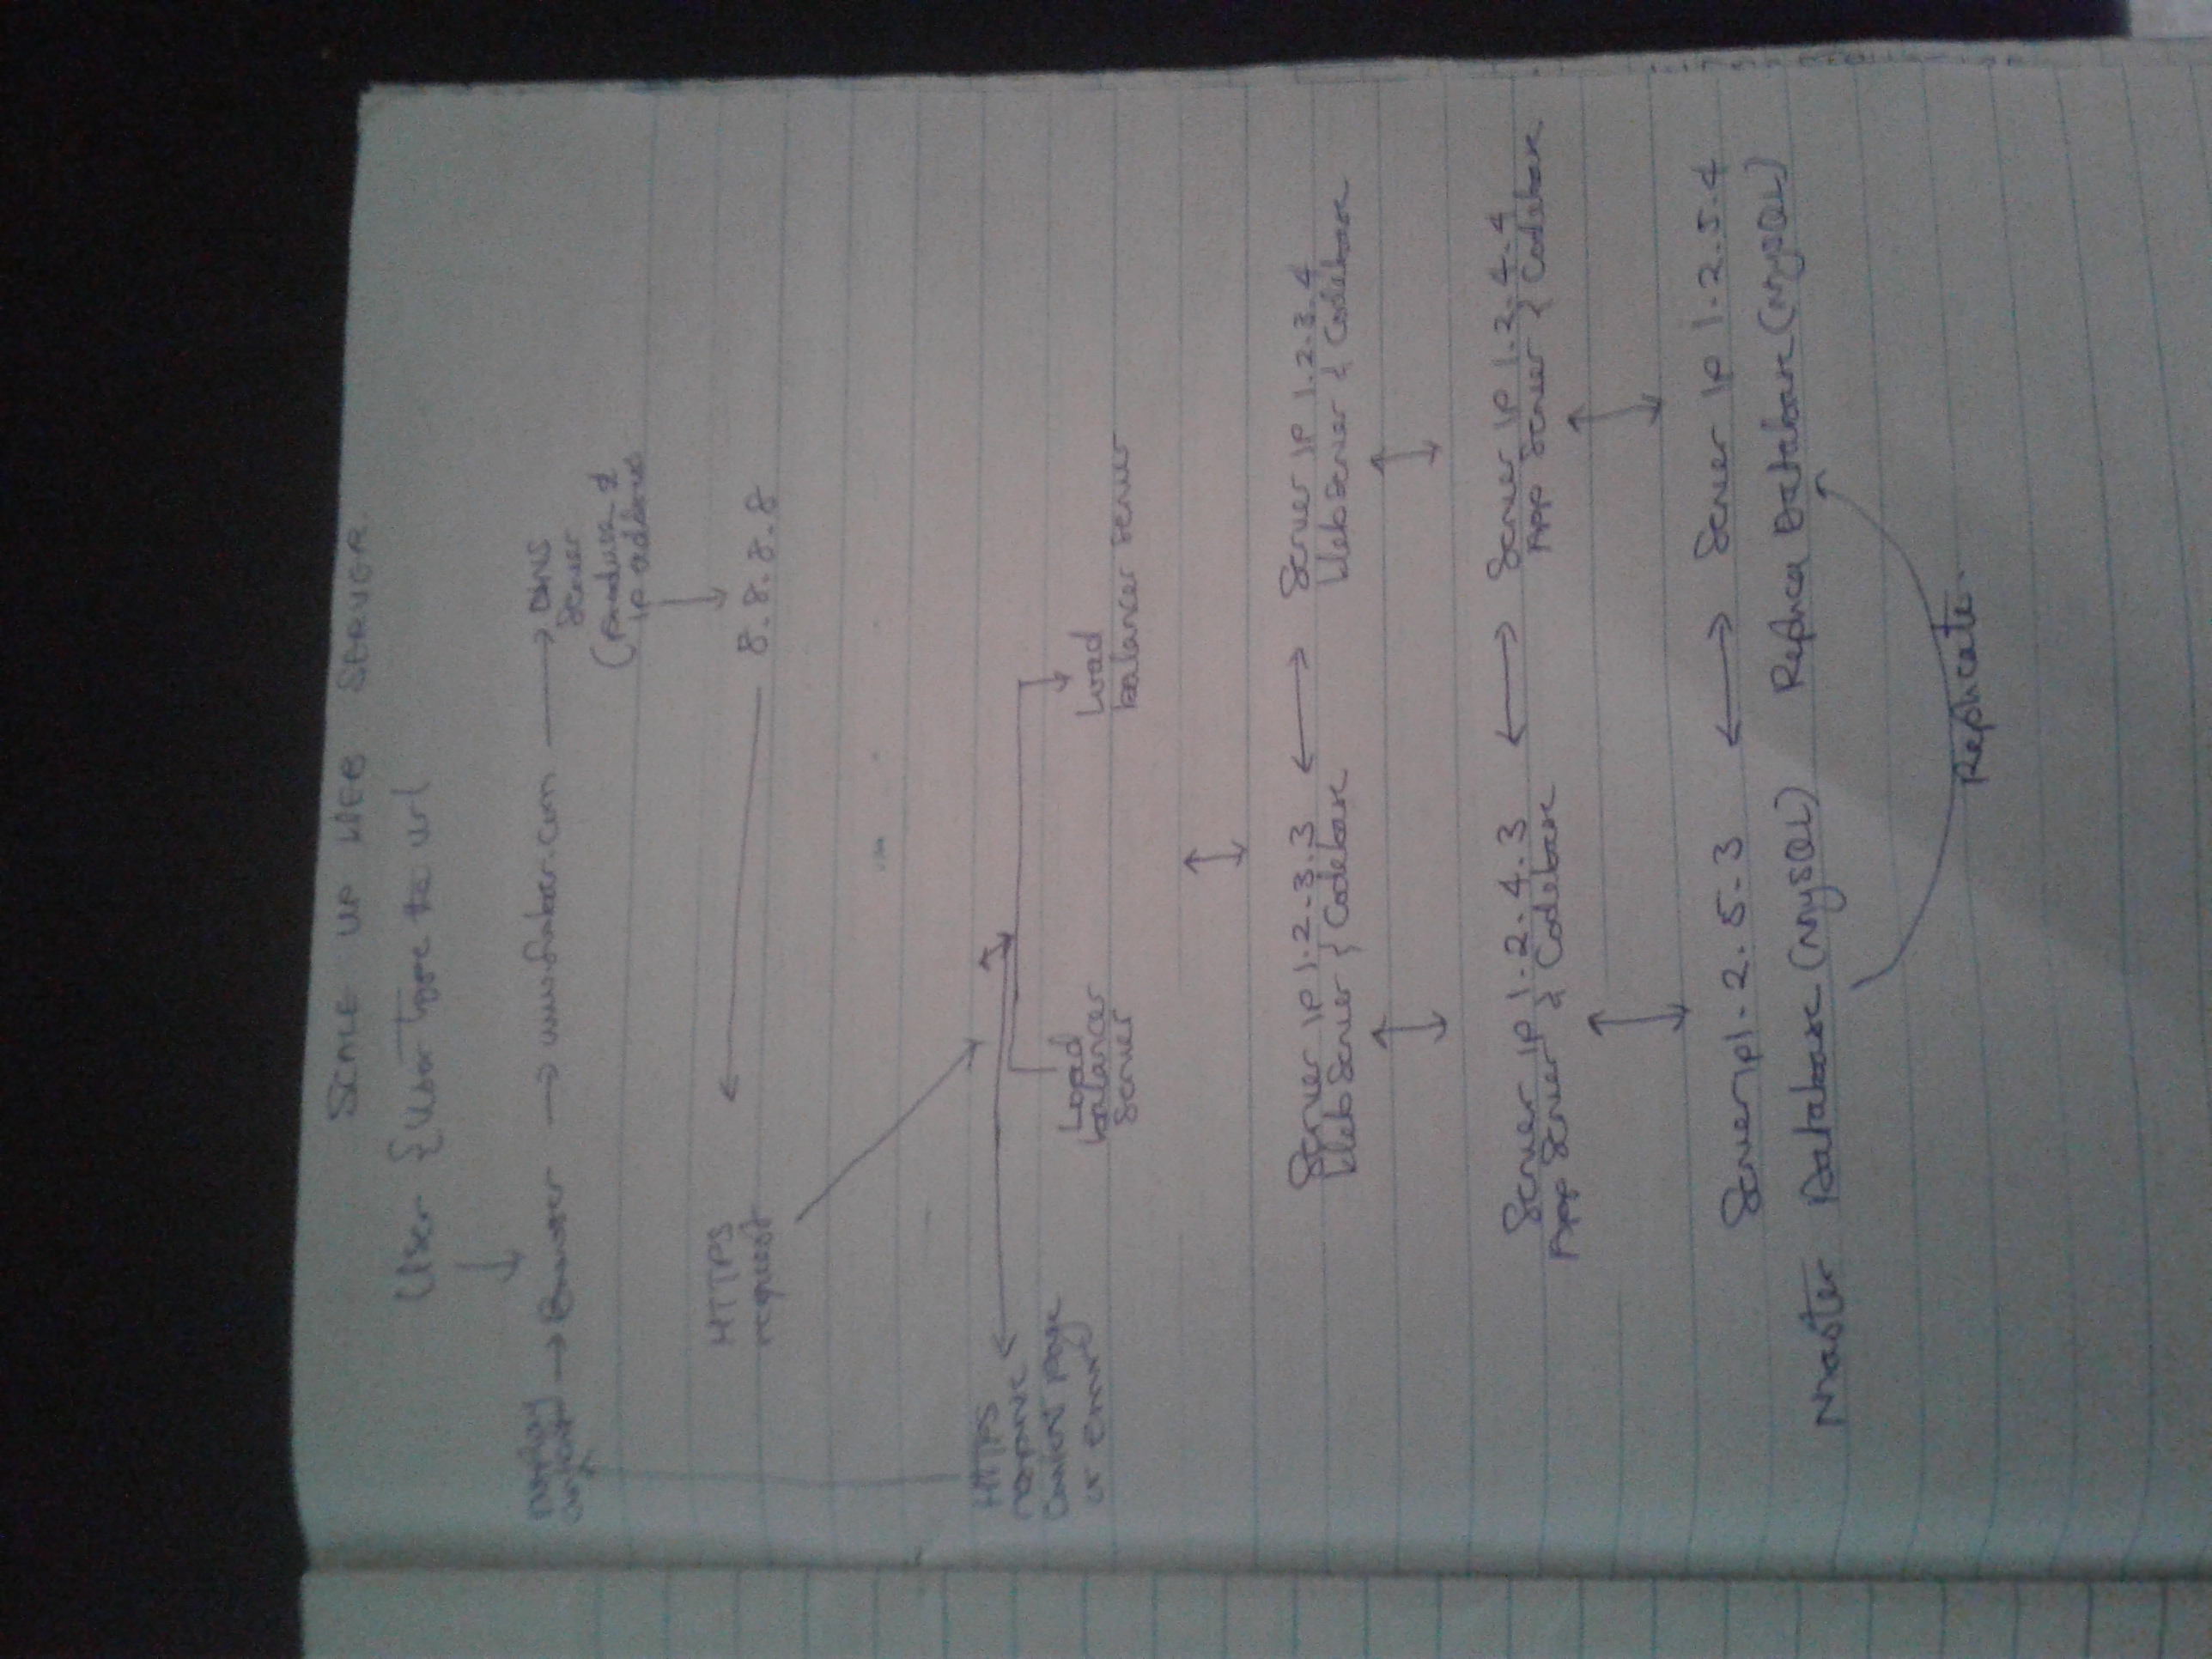 SCALE UP WEB SERVER
User { User type the url
Display
content
Browser
www.foobar.com
DNS
Server
(produce
ip address
HTTPS
request
8.8.8.8
HTTPS
response
Content page
or error
Load
balancer
Server
Load
balancer server
Server ip 1.2.3.3
Web Server & Codebase
Server ip 1.2.3.4
Web Server & Codebase
Server ip 1.2.4.3
App Server & Codebase
Server ip 1.2.4.4
App Server & Codebase
Server ip 1.2.5.3
Master Database (MySQL)
Server ip 1.2.5.4
Replica Database (MySQL)
Replicate.